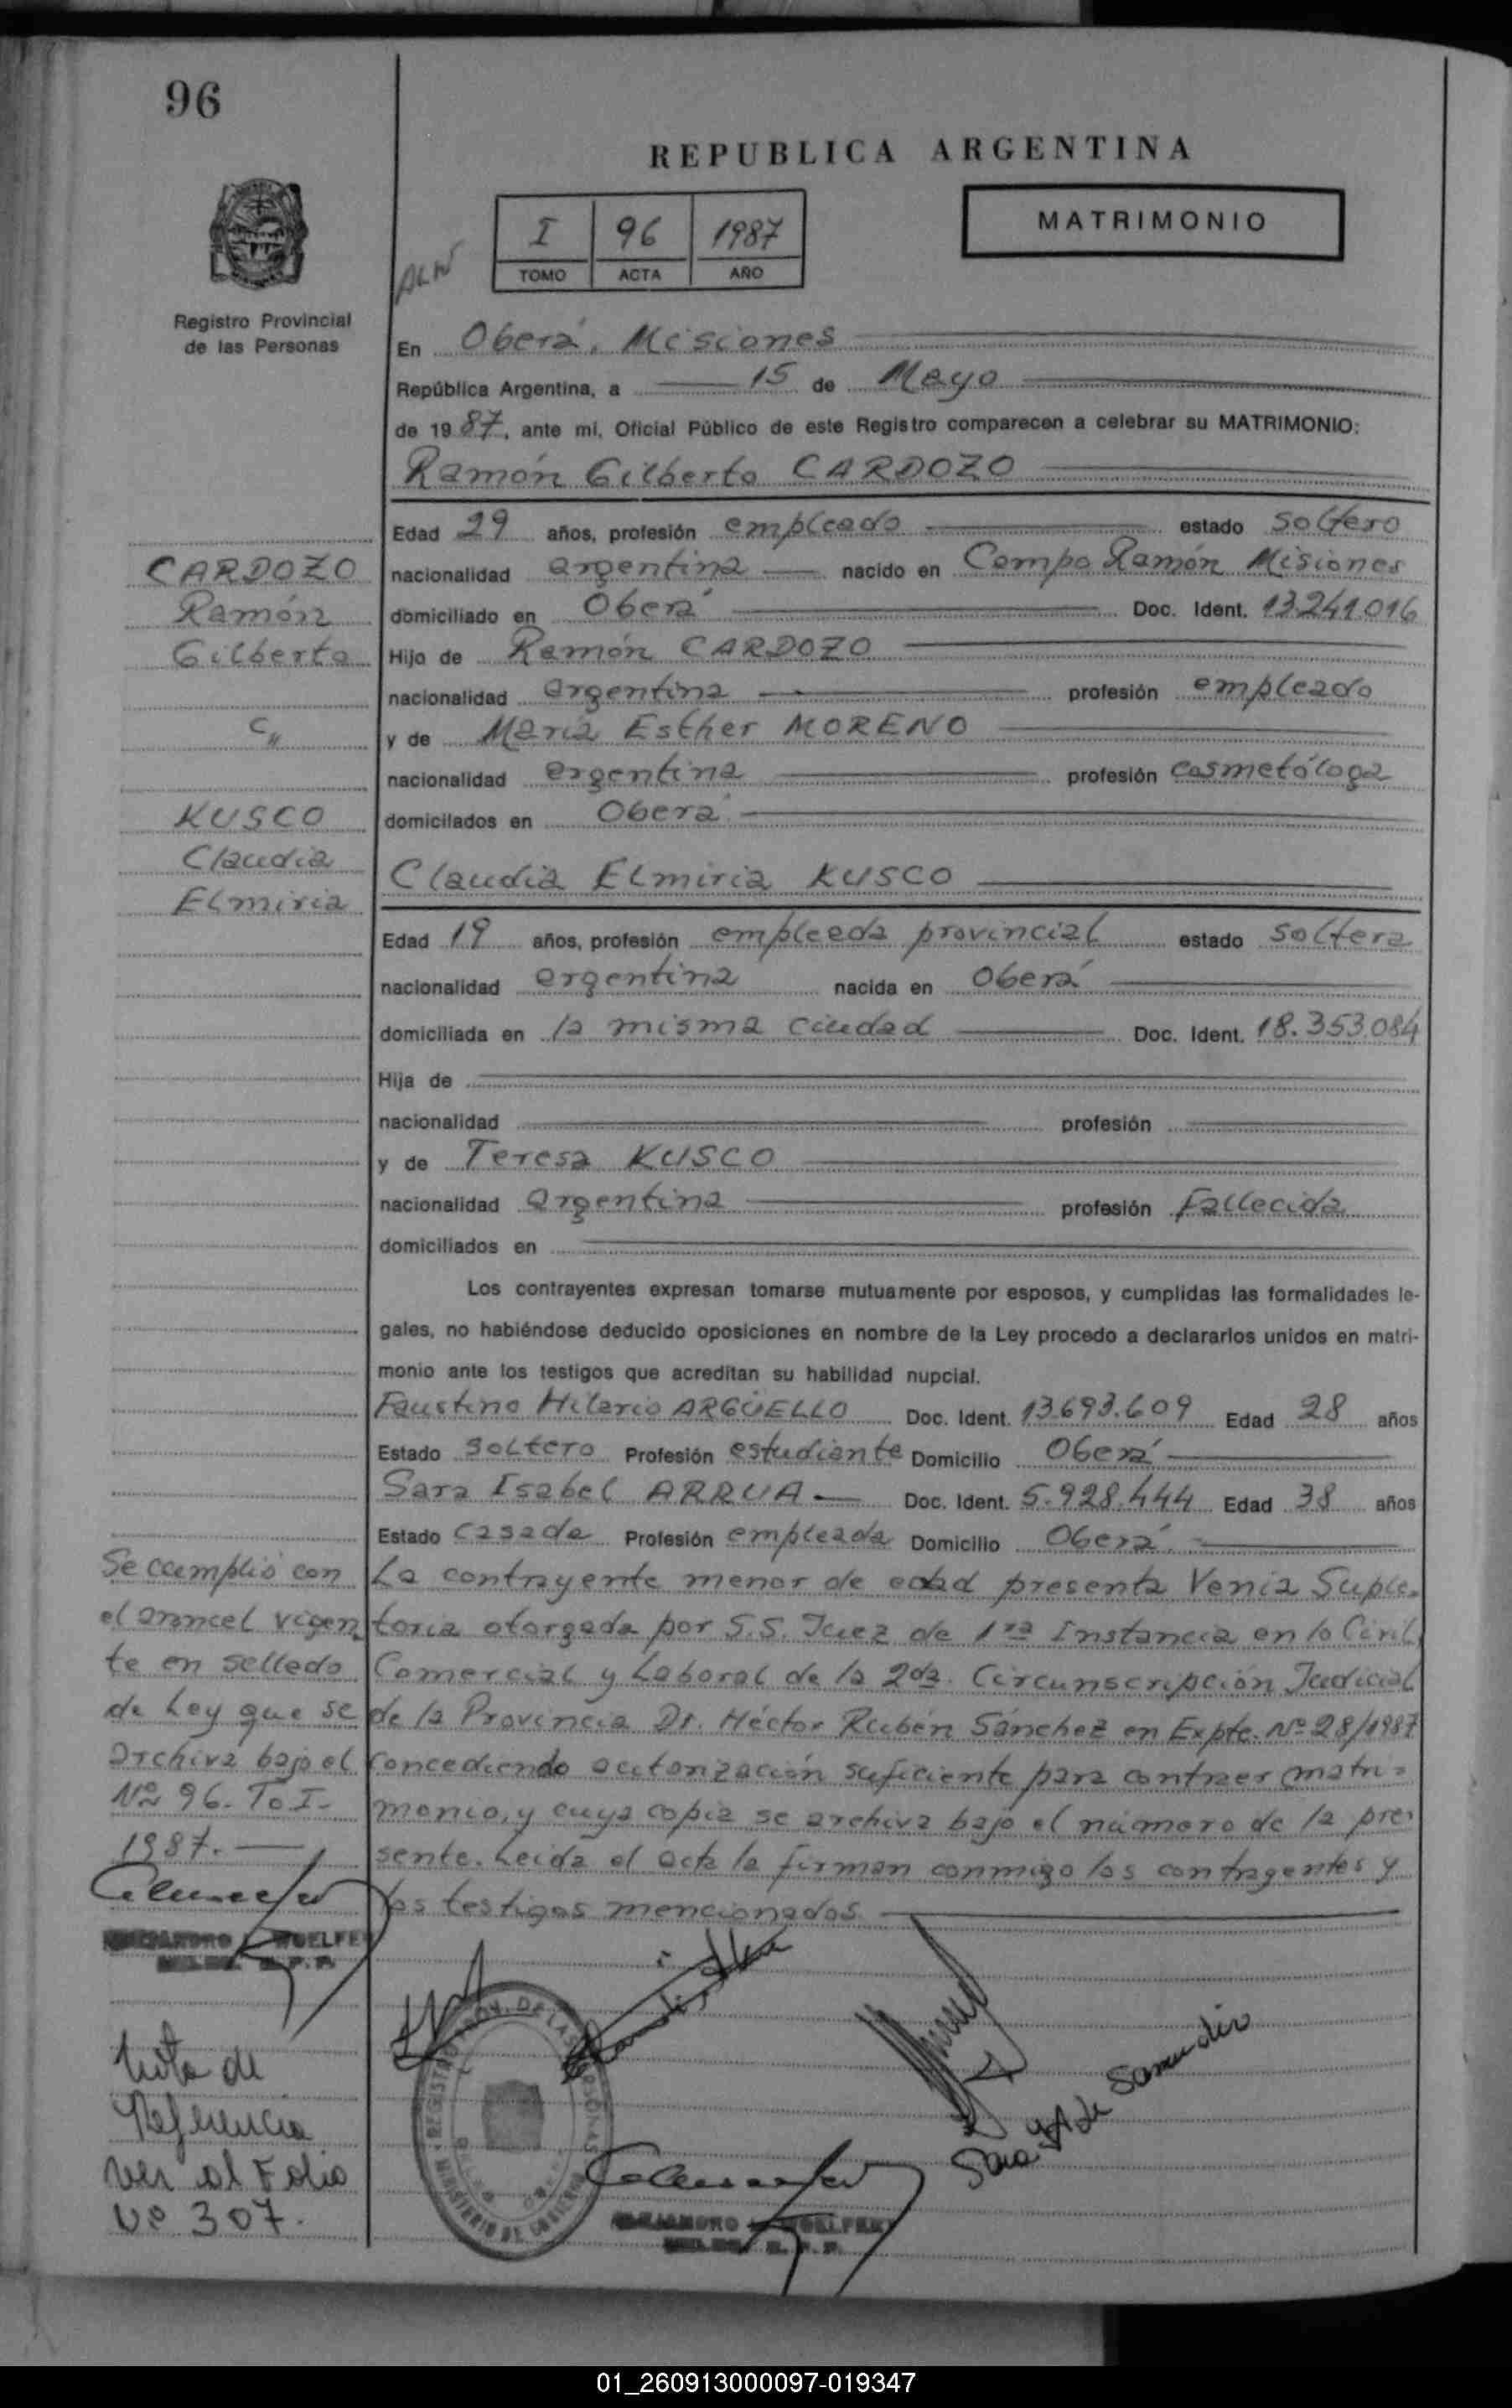 96
REPUBLICA ARGENTINA
MATRIMONIO
I 96 1987
TOMO ACTA AÑO
Registro Provincial
de las Personas
En Oberá, Misiones
República Argentina, a 15 de Mayo
de 1987, ante mi, Oficial Público de este Registro comparecen a celebrar su MATRIMONIO:
Ramón Gilberto CARDOZO
Edad 29 años, profesión empleado estado soltero
CARDOZO
Ramón
Gilberto
c/
KUSCO
Claudia
Elmiria
nacionalidad argentina nacido en Campo Ramón Misiones
domiciliado en Oberá Doc. Ident. 13.241.016
Hijo de Ramón CARDOZO
nacionalidad argentina profesión empleado
y de María Esther MORENO
nacionalidad argentina profesión cosmetóloga
domicilados en Oberá
Claudia Elmiria KUSCO
Edad 19 años, profesión empleada provincial estado soltera
nacionalidad argentina nacida en Oberá
domiciliada en la misma ciudad Doc. Ident. 18.353.084
Hija de
nacionalidad profesión
y de Teresa KUSCO
nacionalidad argentina profesión Fallecida
domiciliados en
Los contrayentes expresan tomarse mutuamente por esposos, y cumplidas las formalidades le-
gales, no habiéndose deducido oposiciones en nombre de la Ley procedo a declararlos unidos en matri-
monio ante los testigos que acreditan su habilidad nupcial.
Faustino Hilario ARGÜELLO Doc. Ident. 13.693.609 Edad 28 años
Estado soltero Profesión estudiante Domicilio Oberá
Sara Isabel ARRUA Doc. Ident. 5.928.444 Edad 38 años
Estado casada Profesión empleada Domicilio Oberá
La contrayente menor de edad presenta Venia Suple-
toria otorgada por S.S. Juez de 1ra Instancia en lo Civil,
Comercial y Laboral de la 2da. Circunscripción Judicial
de la Provincia Dr. Héctor Rubén Sánchez en Expte. Nº 28/1987
concediendo autorización suficiente para contraer matri-
monio, y cuya copia se archiva bajo el número de la pre-
sente. Leída el acta la firman conmigo los contrayentes y
los testigos mencionados
Se cumplió con
el arancel vigen
te en sellado
de Ley que se
archiva bajo el
Nº 96. Tº I-
1987.
Nota de
Referencia
ver al Folio
Nº 307.
REGISTRO PROV. DE LAS PERSONAS
MINISTERIO DE GOBIERNO
01_260913000097-019347